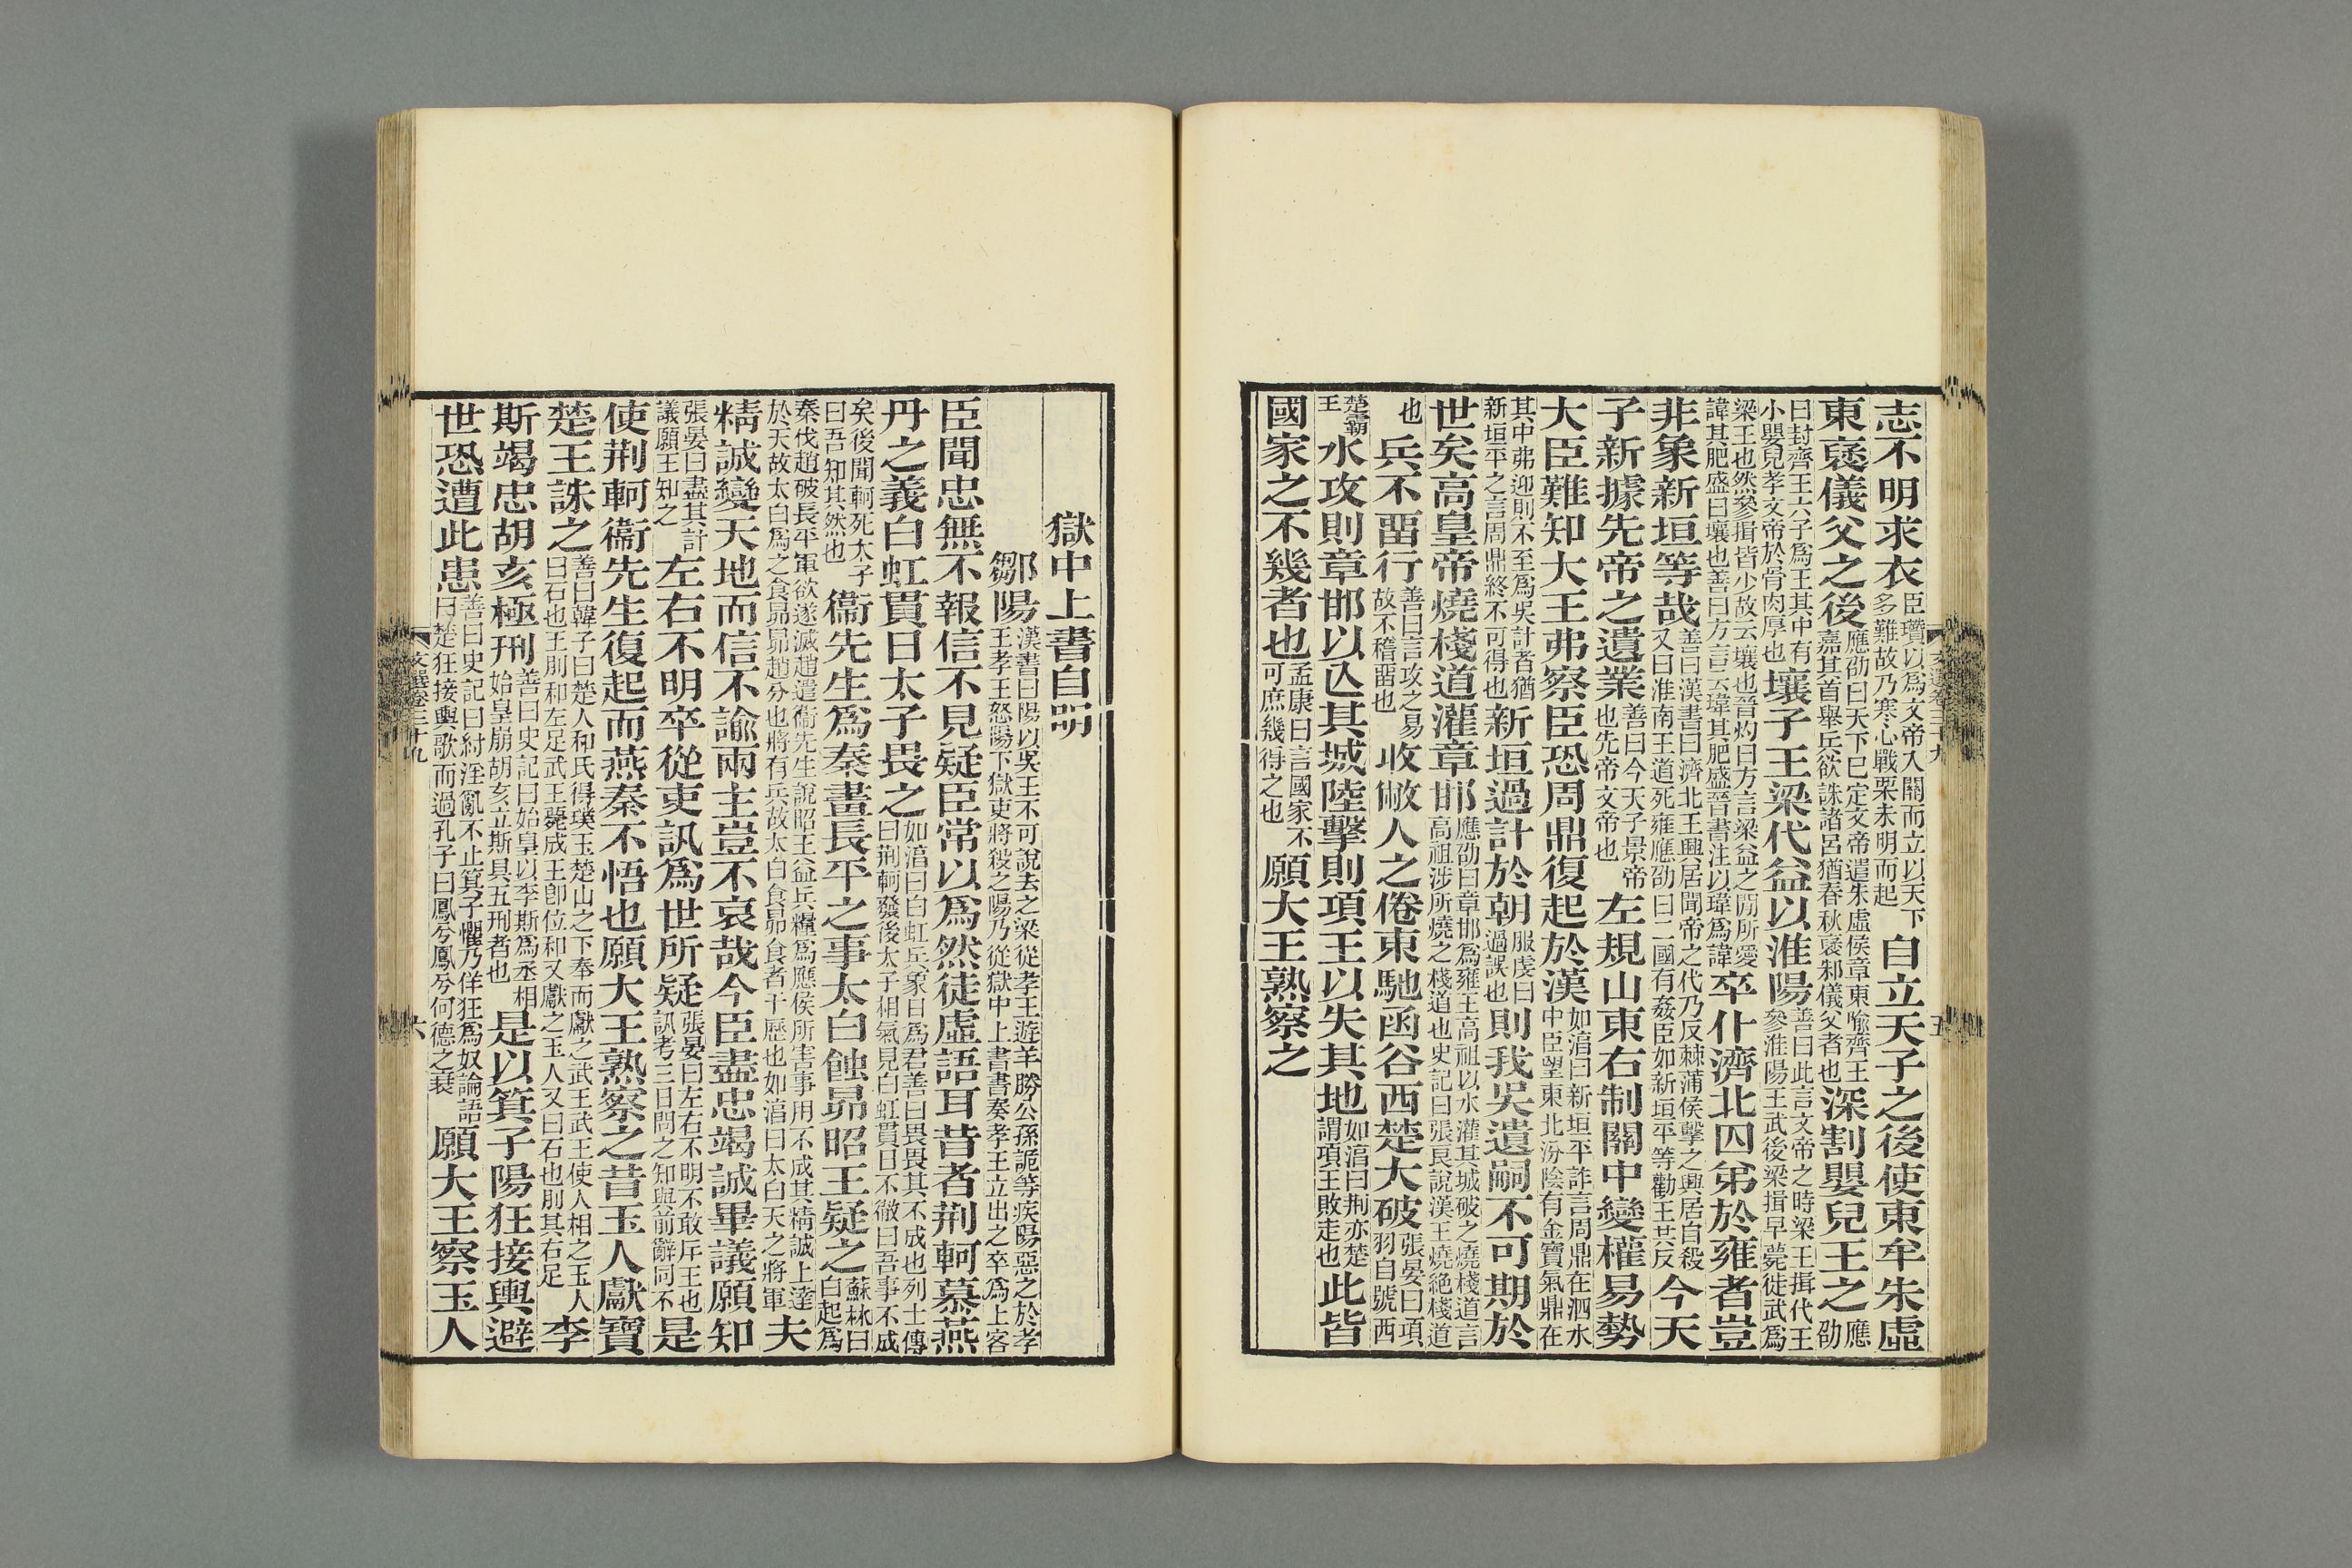 志不明求衣臣瓚以爲文帝入關而立以天下多難故乃寒心戰栗未明而起自立天子之後使東牟朱虛
東襃儀父之後應劭曰天下已定文帝遣朱虛侯章東喻齊王嘉其首舉兵欲誅諸呂猶春秋襃邾儀父者也深割嬰兒王之應劭
曰封齊王六子爲王其中有小嬰兒孝文帝於骨肉厚也壤子王梁代益以淮陽善曰此言文帝之時梁王揖代王參淮陽王武後梁揖早薨徙武爲
梁王也然參揖皆少故云壤也晉灼曰方言梁益之閒所愛諱其肥盛曰壤也善曰方言云瑋其肥盛晉書注以瑋爲諱卒仆濟北囚弟於雍者豈
非象新垣等哉善曰漢書曰濟北王興居聞帝之代乃反棘蒲侯擊之興居自殺又曰淮南王道死雍應劭曰二國有姦臣如新垣平等勸王共反今天
子新據先帝之遺業善曰今天子景帝也先帝文帝也左規山東右制關中變權易勢
大臣難知大王弗察臣恐周鼎復起於漢如淳曰新垣平詐言周鼎在泗水中臣望東北汾陰有金寶氣鼎在
其中弗迎則不至爲吳計者猶新垣平之言周鼎終不可得也新垣過計於朝服虔曰過誤也則我吳遺嗣不可期於
世矣高皇帝燒棧道灌章邯應劭曰章邯爲雍王高祖以水灌其城破之燒棧道言高祖涉所燒之棧道也史記曰張良說漢王燒絕棧道
也兵不畱行善曰言攻之易故不稽畱也收敝人之倦東馳函谷西楚大破張晏曰項羽自號西
楚霸王水攻則章邯以亾其城陸擊則項王以失其地如淳曰荆亦楚謂項王敗走也此皆
國家之不幾者也孟康曰言國家不可庶幾得之也願大王熟察之
獄中上書自明
鄒陽漢書曰陽以吳王不可說去之梁從孝王遊羊勝公孫詭等疾陽惡之於孝王孝王怒陽下獄吏將殺之陽乃從獄中上書書奏孝王立出之卒爲上客
臣聞忠無不報信不見疑臣常以爲然徒虛語耳昔者荆軻慕燕
丹之義白虹貫日太子畏之如淳曰白虹兵象日爲君善曰畏畏其不成也列士傳曰荆軻發後太子相氣見白虹貫日不徹曰吾事不成
矣後聞軻死太子曰吾知其然也衞先生爲秦畫長平之事太白蝕昴昭王疑之蘇林曰白起爲
秦伐趙破長平軍欲遂滅趙遣衞先生說昭王益兵糧爲應侯所害事用不成其精誠上達於天故太白爲之食昴昴趙分也將有兵故太白食昴食者干歷也如淳曰太白天之將軍夫
精誠變天地而信不諭兩主豈不哀哉今臣盡忠竭誠畢議願知
張晏曰盡其計議願王知之左右不明卒從吏訊爲世所疑張晏曰左右不明不敢斥王也訊考三日問之知與前辭同不是
使荆軻衞先生復起而燕秦不悟也願大王熟察之昔玉人獻寶
楚王誅之善曰韓子曰楚人和氏得璞玉楚山之下奉而獻之武王武王使人相之玉人曰石也王刖和左足武王薨成王卽位和又獻之玉人又曰石也刖其右足李
斯竭忠胡亥極刑善曰史記曰始皇以李斯爲丞相始皇崩胡亥立斯具五刑者也是以箕子陽狂接輿避
世恐遭此患善曰史記曰紂淫亂不止箕子懼乃佯狂爲奴論語曰楚狂接輿歌而過孔子曰鳳兮鳳兮何德之衰願大王察玉人
文選卷三十九
六
文選卷三十九
五